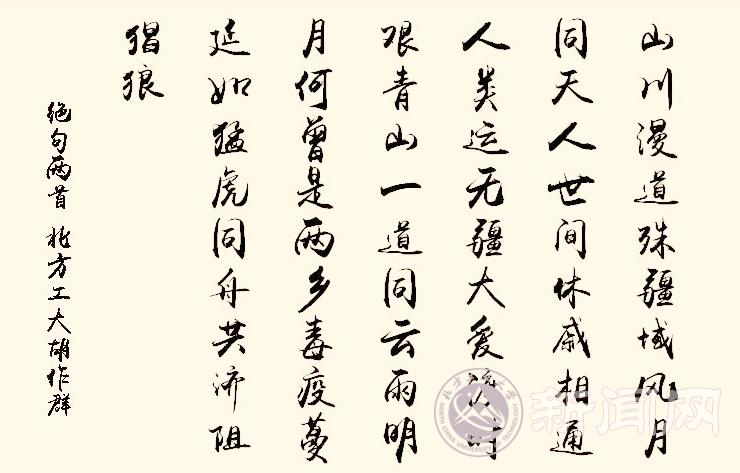 山川漫道殊疆域风月
同天人世间休戚相通
人类运无疆大爱济时
艰青山一道同云雨明
月何曾是两乡毒疫蔓
延如猛虎同舟共济阻
猖狼
绝句两首 北方工大胡作群
新闻网